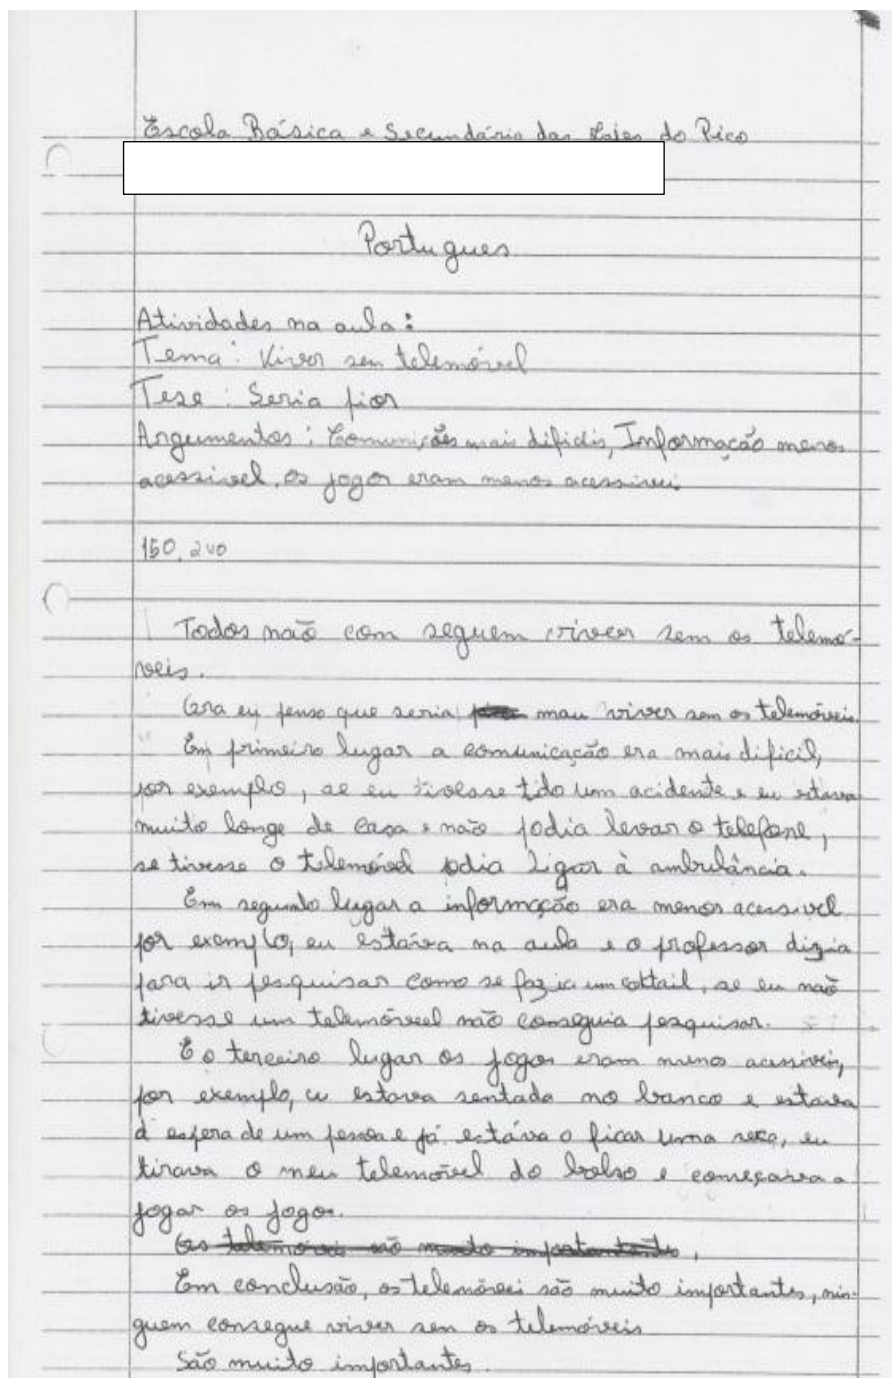 Escola Básica e Secundária das Lajes do Pico
Portugues
Atividades na aula:
Tema: Viver sem telemóvel
Tese: Seria pior
Argumentos: Comunições mais difidis, Informação menos
acessivel, os jogos eram menos acessivei
150, 240
Todos não com seguem viver sem os telemó-
veis.
Ora eu penso que seria mau viver sem os telemóveis.
Em primeiro lugar a comunicação era mais dificil,
por exemplo, se eu tivesse tido um acidente e eu estava
muito longe de casa e não podia levar o telefone,
se tivesse o telemóvel podia ligar à ambulância.
Em segundo lugar a informação era menos acessivel
por exemplo, eu estáva na aula e o professor dizia
para ir pesquisar como se fazia um coktail, se eu não
tivesse um telemóvel não conseguia pesquisar.
E o terceiro lugar os jogos eram menos acessiveis,
por exemplo, eu estava sentada no banco e estava
á espera de um pessoa e já estáva o ficar uma seca, eu
tirava o meu telemóvel do bolso e começava a
jogar os jogos.
Os telemóveis são muito importantes,
Em conclusão, os telemóvei são muito importantes, nin-
guem consegue viver sem os telemóveis
São muito importantes.